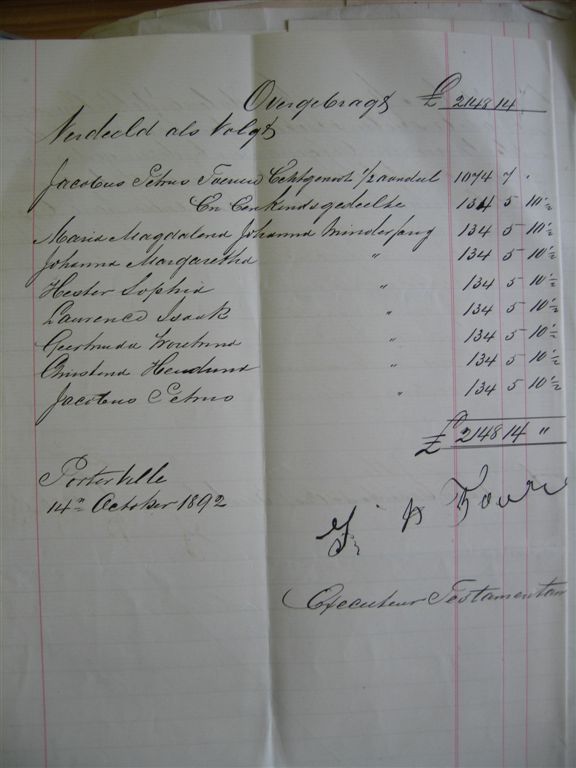 Overgebragt £ 2148 14
Verdeeld als Volgt
Jacobus Petrus Echtgenoot 1/2 aandeel 1074 7 "
En Een Kindsgedeelte 134 5 10 1/2
Maria Magdalena Johanna minderjarig 134 5 10 1/2
Johanna Margaretha " 134 5 10 1/2
Hester Sophia " 134 5 10 1/2
Laurence Isaak " 134 5 10 1/2
Gertruida " 134 5 10 1/2
Christina " 134 5 10 1/2
Jacobus Petrus " 134 5 10 1/2
£ 2148 14 "
Porterville
14n October 1892
Executeur Testamentair